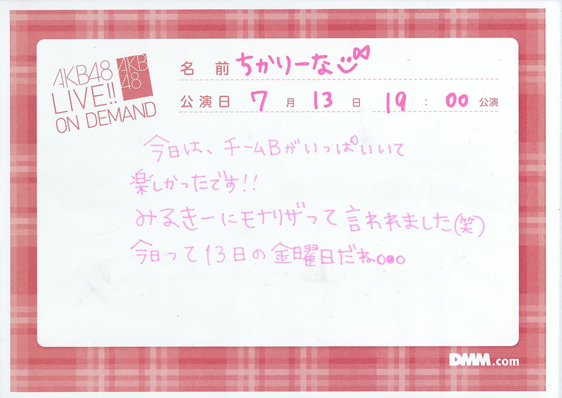 AKB48
LIVE!!
ON DEMAND
AKB
48
名 前 ちかりーな
公演日 7 月 13 日 19 : 00 公演
今日は、チームBがいっぱいいて
楽しかったです!!
みるきーにモナリザって言われました(笑)
今日って13日の金曜日だね。。。
DMM.com